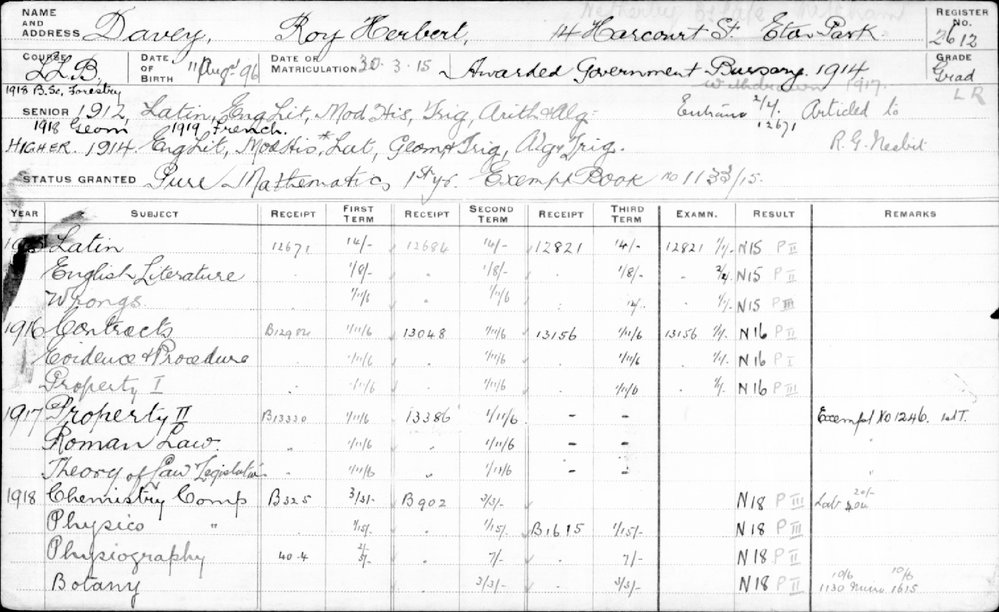 NAME AND ADDRESS Davey, Roy Herbert, 14 Harcourt St Eton Park.
REGISTER No. 2612
COURSE LL.B. DATE OF BIRTH 11 Aug 96 DATE OF MATRICULATION 30.3.15 Awarded Government Bursary 1914 GRADE Grad
1918 B.Sc. Forestry Withdrawn 1917. LR
SENIOR 1912, Latin, Eng Lit, Mod His, Trig, Arith & Alg. 12671 Articled to
1918 Geom 1919 French. R.G. Nesbit
HIGHER. 1914. Eng Lit, Mod His,* Lat, Geom & Trig, Alg & Trig.
STATUS GRANTED Pure Mathematics 1st yr. Exempt Book no 1133/15.
YEAR SUBJECT RECEIPT FIRST TERM RECEIPT SECOND TERM RECEIPT THIRD TERM EXAMN. RESULT REMARKS
Latin 12671 14/- 12684 14/- 12821 14/- 12821 1/1/. N15 P II
English Literature 1/8/- . 1/8/- . 1/8/- . N15 P II
Wrongs 1/11/6 . 1/11/6 . 1/1/. N15 P III
1916 Contracts B12982 1/11/6 13048 1/11/6 13156 1/11/6 13156 1/1. N16 P II
Evidence & Procedure . 1/11/6 . 1/11/6 . 1/11/6 . 1/1. N16 P I
Property I . 1/11/6 . 1/11/6 . 1/11/6 . 1/1. N16 P III
1917 Property II B13330 1/11/6 13386 1/11/6 - - Exempt No 1246. 1st T.
Roman Law . 1/11/6 . 1/11/6 - - "
Theory of Law Legislation . 1/11/6 . 1/11/6 - - "
1918 Chemistry Comp B325 3/3/- B902 3/3/- N18 P III Lab 20/-
Physics " 1/15/- . 1/15/- B1615 1/15/- N18 P III
Physiography 404 7/- . 7/- N18 P II
Botany 3/3/- 3/3/- N18 P II 10/6 10/6
1130 Micro 1615